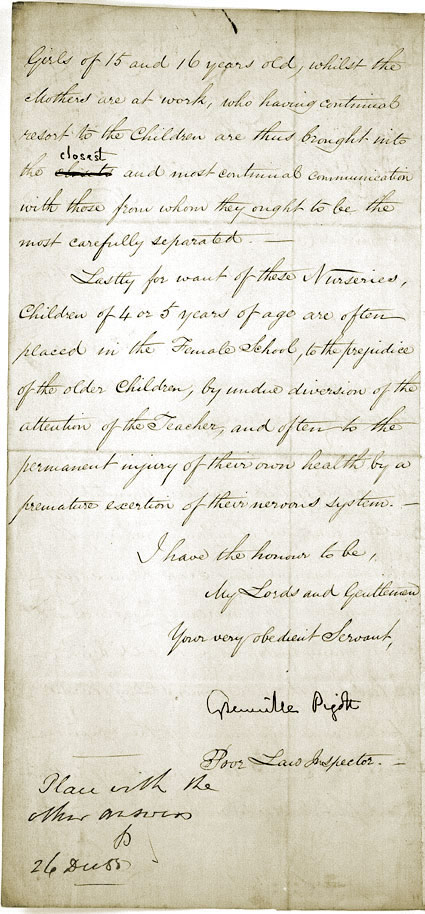 Girls of 15 and 16 years old, whilst the
Mothers are at work, who having continual
resort to the Children are thus brought into
the closest and most continual communication
with those from whom they ought to be the
most carefully separated. —
Lastly for want of these Nurseries,
Children of 4 or 5 years of age are often
placed in the Female School, to the prejudice
of the older Children, by undue diversion of the
attention of the Teacher, and often to the
permanent injury of their own health by a
premature exertion of their nervous system. —
I have the honour to be,
My Lords and Gentlemen
Your very obedient Servant,
Grenville Pigott
Poor Law Inspector. —
Place with the
other answers
26